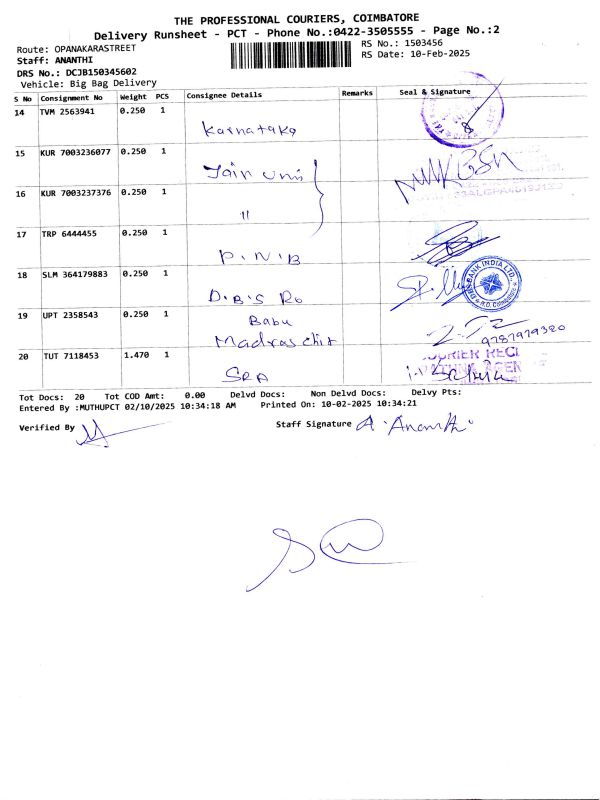 THE PROFESSIONAL COURIERS, COIMBATORE
Delivery Runsheet - PCT - Phone No.:0422-3505555 - Page No.:2
Route: OPANAKARASTREET RS No.: 1503456
Staff: ANANTHI RS Date: 10-Feb-2025
DRS No.: DCJB150345602
Vehicle: Big Bag Delivery
S No Consignment No Weight PCS Consignee Details Remarks Seal & Signature
14 TVM 2563941 0.250 1
Karnataka
15 KUR 7003236077 0.250 1
Jain
16 KUR 7003237376 0.250 1
"
17 TRP 6444455 0.250 1
P.N.B
18 SLM 364179883 0.250 1
D.B.S Ro
19 UPT 2358543 0.250 1
Babu
Madras chit
9787979380
20 TUT 7118453 1.470 1
SRA
Tot Docs: 20 Tot COD Amt: 0.00 Delvd Docs: Non Delvd Docs: Delvy Pts:
Entered By :MUTHUPCT 02/10/2025 10:34:18 AM Printed On: 10-02-2025 10:34:21
Verified By Staff Signature A. Ananthi